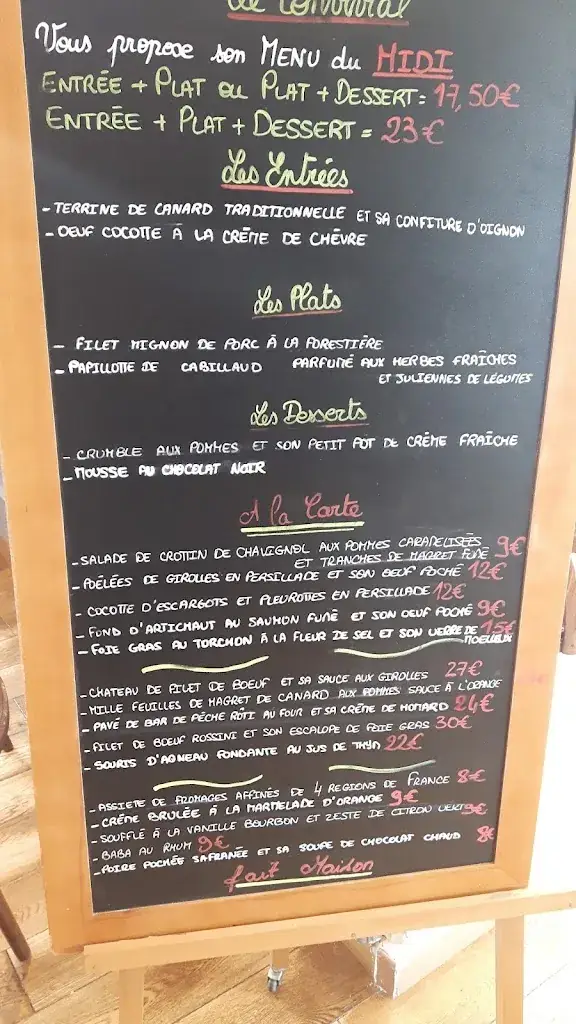 Le Convivial
Vous propose son MENU du MIDI
ENTRÉE + PLAT OU PLAT + DESSERT = 17,50€
ENTRÉE + PLAT + DESSERT = 23€
Les Entrées
- TERRINE DE CANARD TRADITIONNELLE ET SA CONFITURE D'OIGNON
- OEUF COCOTTE À LA CRÈME DE CHÈVRE
Les Plats
- FILET MIGNON DE PORC À LA FORESTIÈRE
- PAPILLOTTE DE CABILLAUD PARFUMÉ AUX HERBES FRAÎCHES
ET JULIENNES DE LÉGUMES
Les Desserts
- CRUMBLE AUX POMMES ET SON PETIT POT DE CRÈME FRAICHE
- MOUSSE AU CHOCOLAT NOIR
A la Carte
- SALADE DE CROTTIN DE CHAVIGNOL AUX POMMES CARAMELISÉES
ET TRANCHES DE MAGRET FUMÉ 9€
- POÊLÉES DE GIROLLES EN PERSILLADE ET SON OEUF POCHÉ 12€
- COCOTTE D'ESCARGOTS ET PLEUROTTES EN PERSILLADE 12€
- FOND D'ARTICHAUT AU SAUMON FUMÉ ET SON OEUF POCHÉ 9€
- FOIE GRAS AU TORCHON À LA FLEUR DE SEL ET SON VERRE DE 15€
MOELLEUX
- CHATEAU DE FILET DE BOEUF ET SA SAUCE AUX GIROLLES 27€
- MILLE FEUILLES DE MAGRET DE CANARD AUX POMMES SAUCE À L'ORANGE
- PAVÉ DE BAR DE PÊCHE RÔTI AU FOUR ET SA CRÈME DE HOMARD 24€
- FILET DE BOEUF ROSSINI ET SON ESCALOPE DE FOIE GRAS 30€
- SOURIS D'AGNEAU FONDANTE AU JUS DE THYM 22€
- ASSIETE DE FROMAGES AFFINÉS DE 4 REGIONS DE FRANCE 8€
- CRÈME BRULÉE À LA MARMELADE D'ORANGE 9€
- SOUFFLÉ À LA VANILLE BOURBON ET ZESTE DE CITRON VERT 9€
- BABA AU RHUM 9€
- POIRE POCHÉE SAFRANÉE ET SA SOUPE DE CHOCOLAT CHAUD 8€
fait Maison